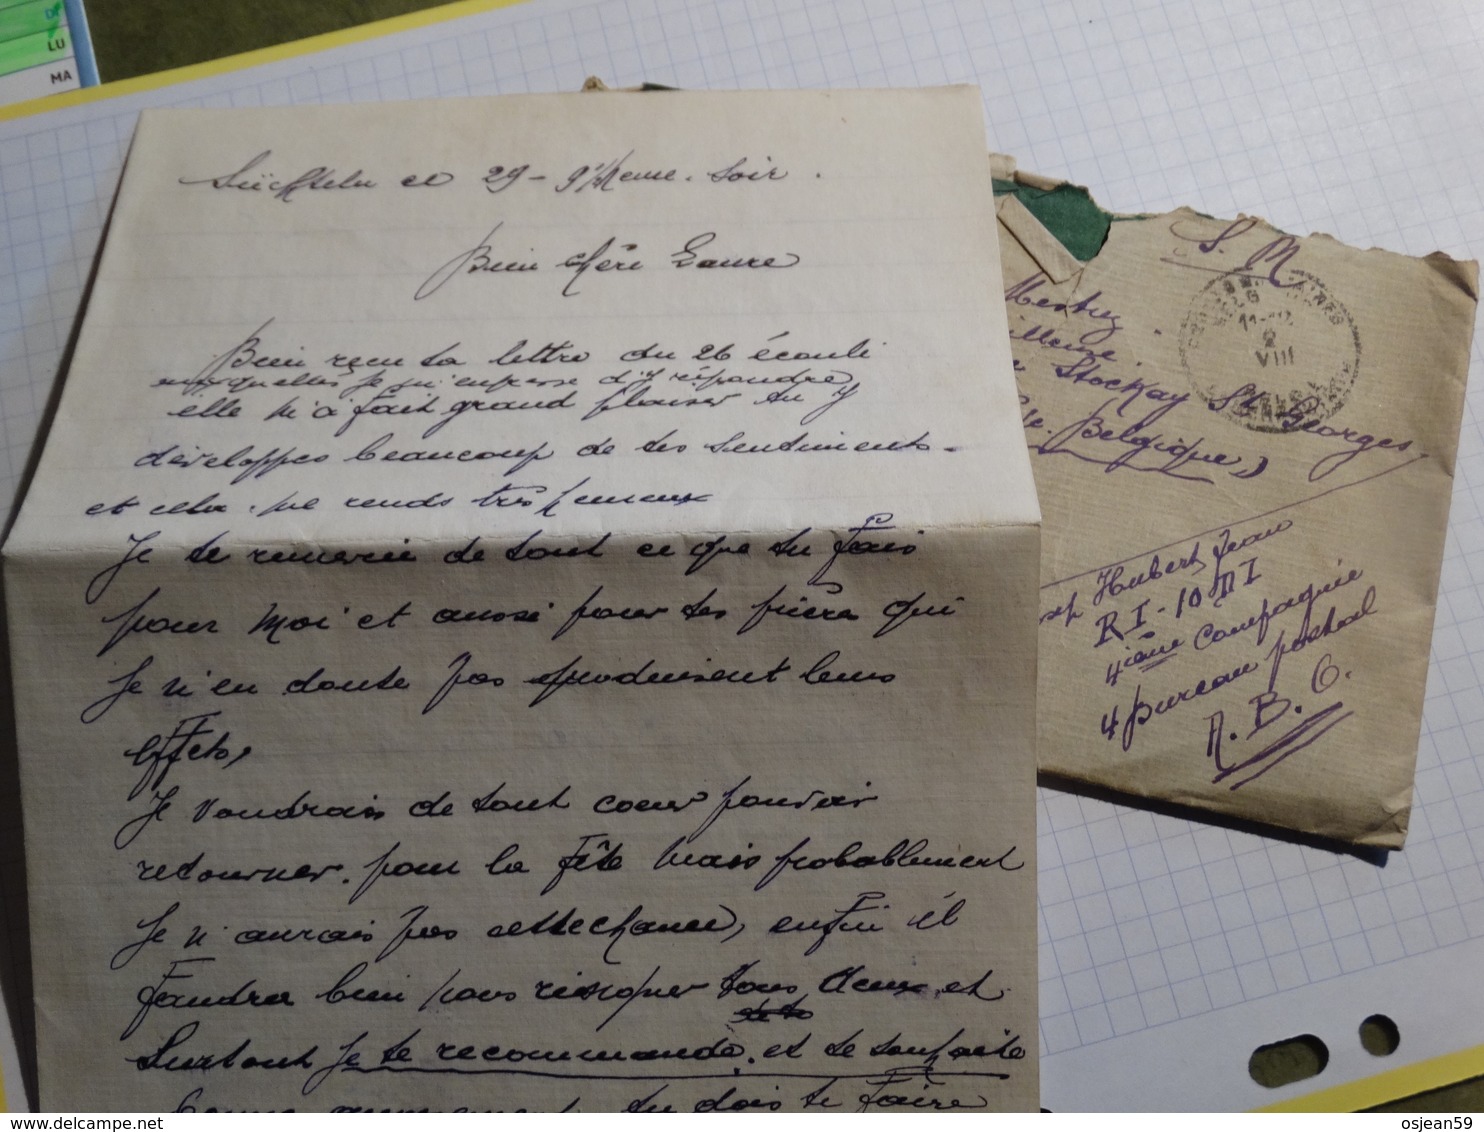 DI
LU
MA
Süchteln ce 29 - 9 heure. soir.
Bien chère Laure
Bien reçu ta lettre du 26 écouli
je m'empresse d'y répondre
elle m'a fait grand plaiser tu y
developpes beaucoup de tes sentiments.
et cela me rends très heureux
Je te remercie de tout ce que tu fais
pour moi et aussi pour tes prière qui
Je n'en doute pas produisent leurs
effets,
Je voudrais de tout coeur pouvoir
retourner. pour la fête mais probablement
Je n'aurais pas cette chance, enfin il
faudra bien nous risquer tous deux et
Surtout je te recommande, et te souhaite
tu dois te faire
S. M
Mestrez
Stockay St Georges
Belgique
11-12
VIII
Hubert Jean
RI-10 DI
4ième Compagnie
4 bureau postal
A. B. O.
osjean59